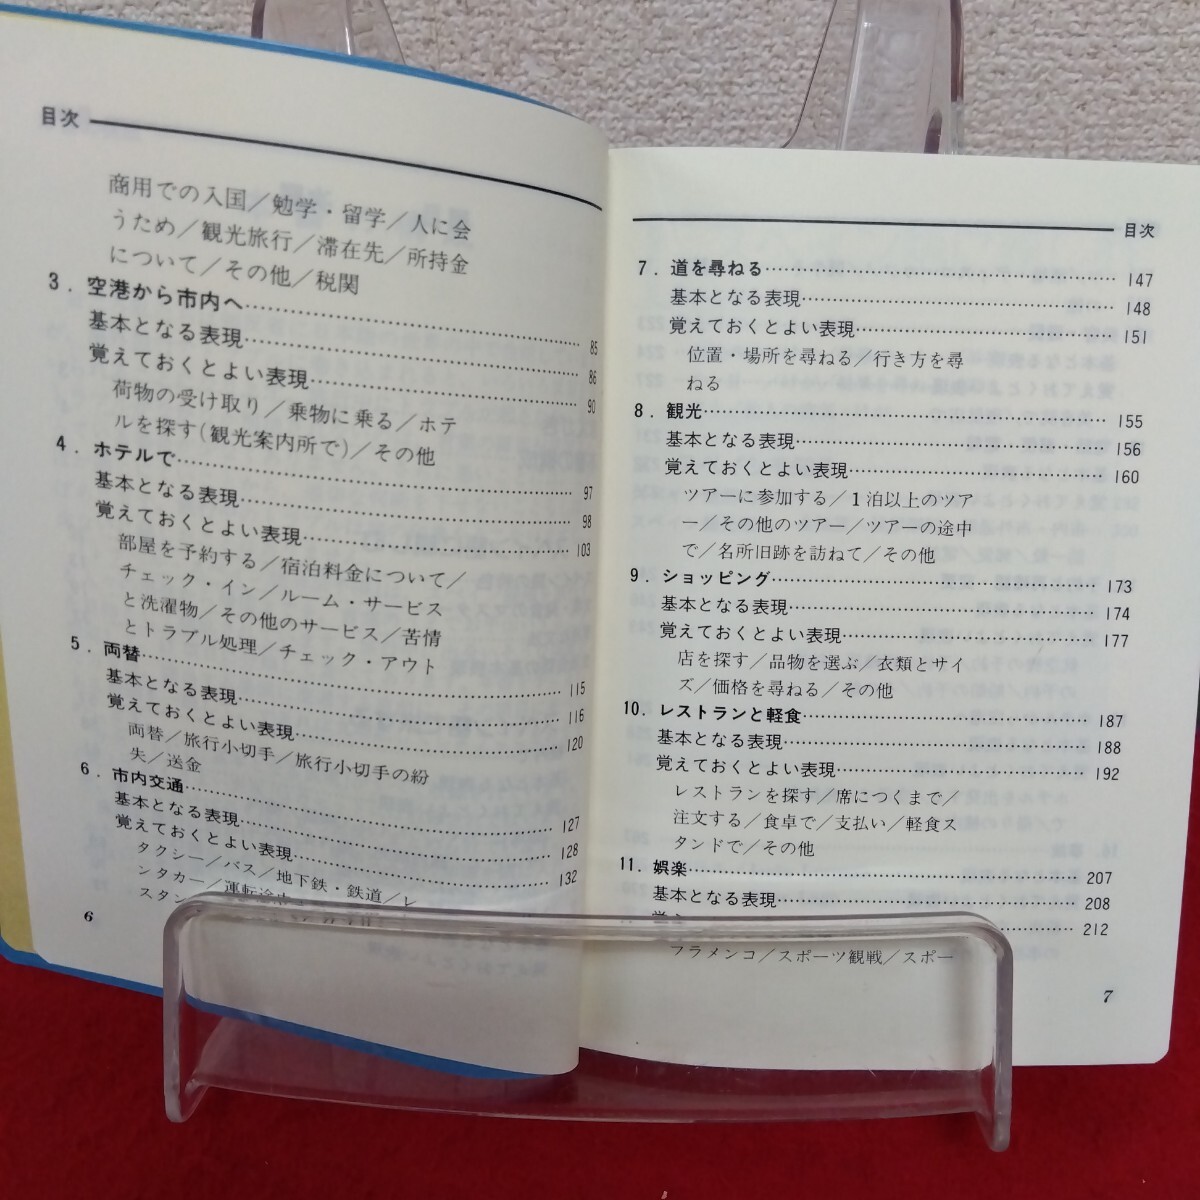 目次
商用での入国／勉学・留学／人に会
うため／観光旅行／滞在先／所持金
について／その他／税関
3．空港から市内へ………85
基本となる表現………86
覚えておくとよい表現………90
荷物の受け取り／乗物に乗る／ホテ
ルを探す(観光案内所で)／その他
4．ホテルで………97
基本となる表現………98
覚えておくとよい表現………103
部屋を予約する／宿泊料金について／
チェック・イン／ルーム・サービス
と洗濯物／その他のサービス／苦情
とトラブル処理／チェック・アウト
5．両替………115
基本となる表現………116
覚えておくとよい表現………120
両替／旅行小切手／旅行小切手の紛
失／送金
6．市内交通………127
基本となる表現………128
覚えておくとよい表現………132
タクシー／バス／地下鉄・鉄道／レ
ンタカー／運転途中
スタン
6
目次
7．道を尋ねる………147
基本となる表現………148
覚えておくとよい表現………151
位置・場所を尋ねる／行き方を尋
ねる
8．観光………155
基本となる表現………156
覚えておくとよい表現………160
ツアーに参加する／1泊以上のツア
ー／その他のツアー／ツアーの途中
で／名所旧跡を訪ねて／その他
9．ショッピング………173
基本となる表現………174
覚えておくとよい表現………177
店を探す／品物を選ぶ／衣類とサイ
ズ／価格を尋ねる／その他
10．レストランと軽食………187
基本となる表現………188
覚えておくとよい表現………192
レストランを探す／席につくまで／
注文する／食卓で／支払い／軽食ス
タンドで／その他
11．娯楽………207
基本となる表現………208
覚え………212
フラメンコ／スポーツ観戦／スポー
7